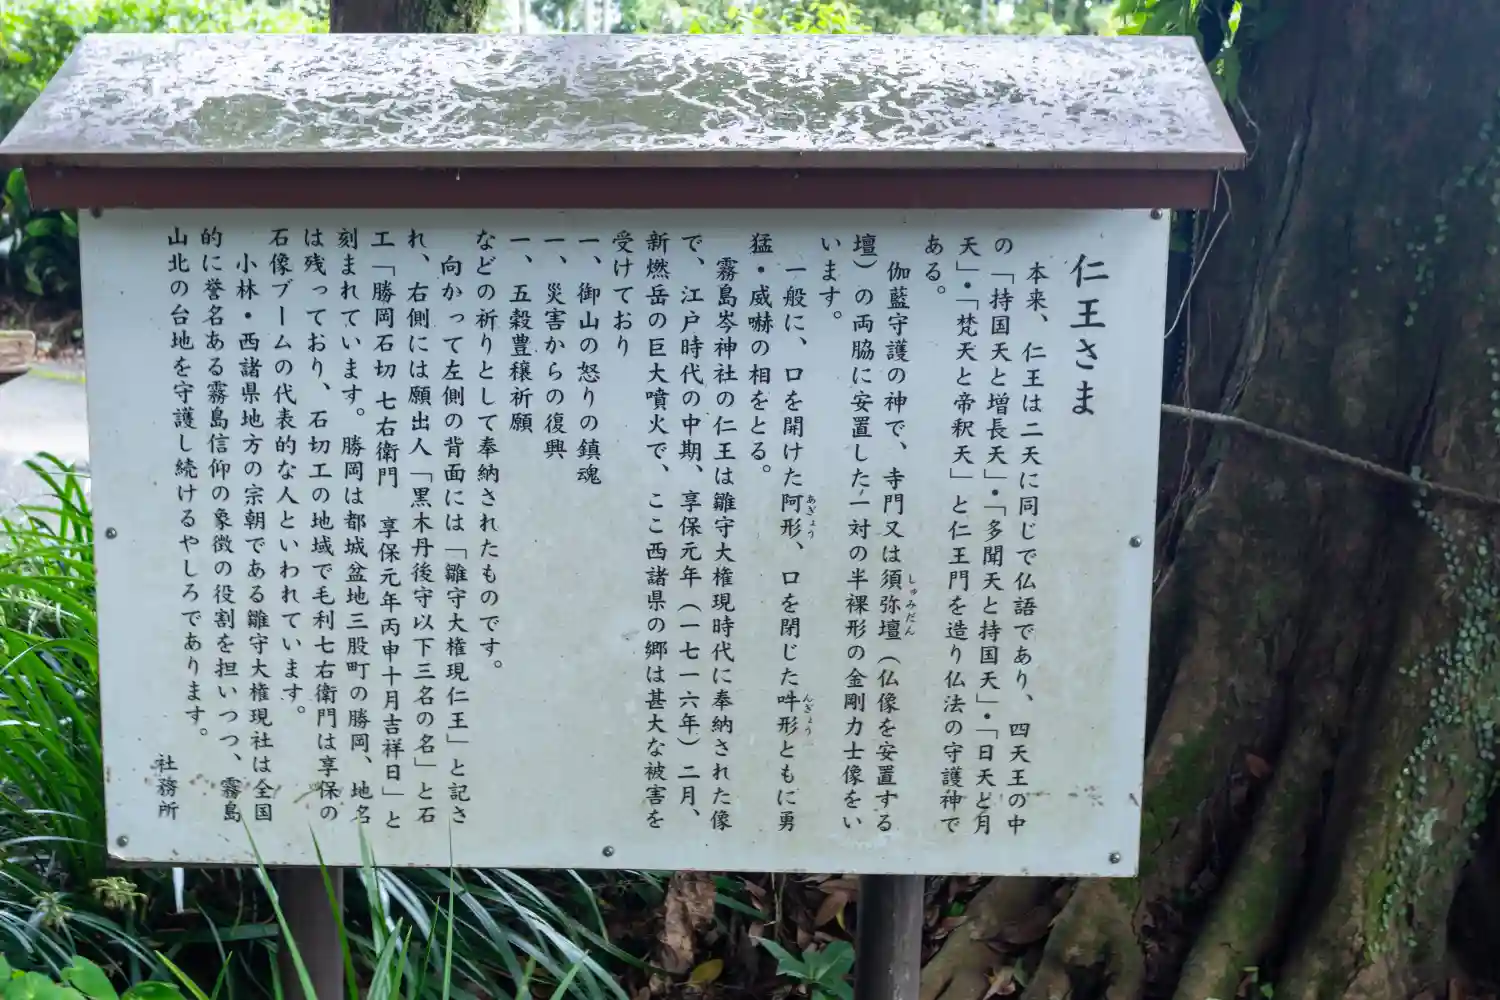 仁王さま
本来、仁王は二天に同じで仏語であり、四天王の中
の「持国天と増長天」・「多聞天と持国天」・「日天と月
天」・「梵天と帝釈天」と仁王門を造り仏法の守護神で
ある。
伽藍守護の神で、寺門又は須弥壇（仏像を安置する
しゅみだん
壇）の両脇に安置した一対の半裸形の金剛力士像をい
います。
一般に、口を開けた阿形、口を閉じた吽形ともに勇
あぎょう
んぎょう
猛・威嚇の相をとる。
霧島岑神社の仁王は雛守大権現時代に奉納された像
で、江戸時代の中期、享保元年（一七一六年）二月、
新燃岳の巨大噴火で、ここ西諸県の郷は甚大な被害を
受けており
一、御山の怒りの鎮魂
一、災害からの復興
一、五穀豊穣祈願
などの祈りとして奉納されたものです。
向かって左側の背面には「雛守大権現仁王」と記さ
れ、右側には願出人「黒木丹後守以下三名の名」と石
工「勝岡石切 七右衛門　享保元年丙申十月吉祥日」と
刻まれています。勝岡は都城盆地三股町の勝岡、地名
は残っており、石切工の地域で毛利七右衛門は享保の
石像ブームの代表的な人といわれています。
小林・西諸県地方の宗朝である雛守大権現社は全国
的に誉名ある霧島信仰の象徴の役割を担いつつ、霧島
山北の台地を守護し続けるやしろであります。
社務所